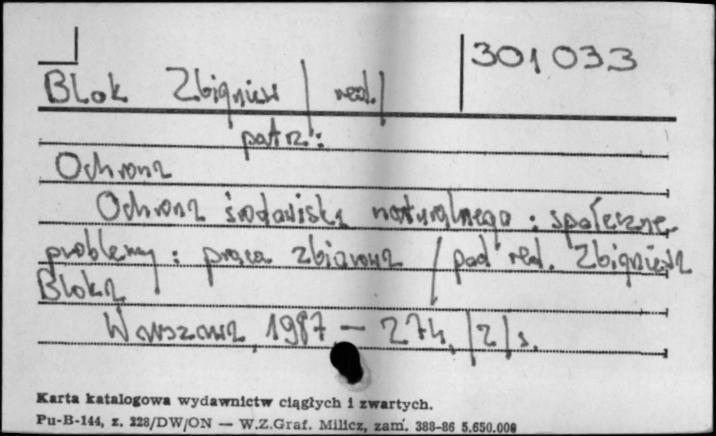 301033
Blok Zbigniew / red./
patrz:
Ochrona
Ochrona środowiska naturalnego : społeczne
problemy : praca zbiorowa / pod red. Zbigniewa
Bloka
Warszawa, 1987 — 274, /2/ s.
Karta katalogowa wydawnictw ciągłych i zwartych.
Pu-B-144, z. 228/DW/ON — W.Z.Graf. Milicz, zam. 388-86 5.650.000